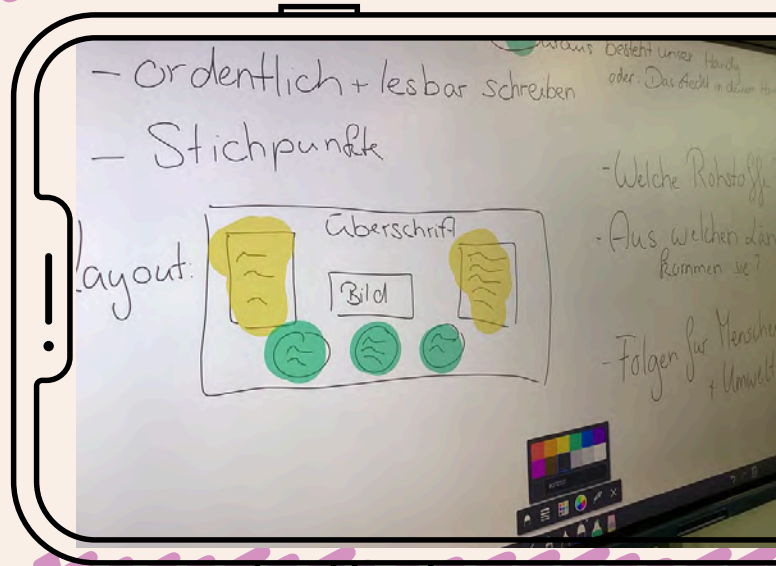 - ordentlich + lesbar schreiben
- Stichpunkte
Layout:
Überschrift
Bild
besteht unser Handy
oder: Das steckt in deinem
- Welche Rohstoffe
- Aus welchen
kommen sie?
- Folgen für Menschen
+ Umwelt